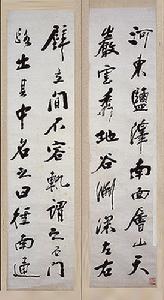 河東鹽澤南面層山天
巖雲秀地谷淵深左右
壁立間不容軌謂之石門
路出其中名之曰徑南通